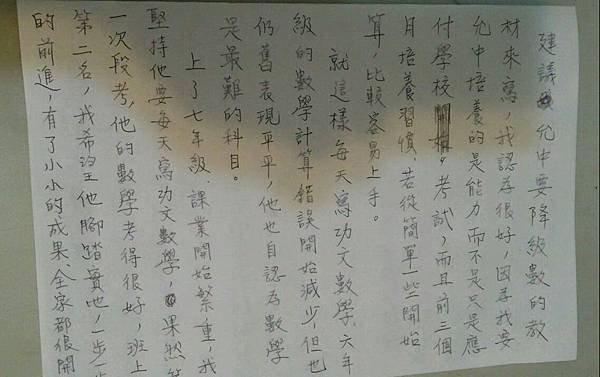 建議允中要降級數的教
材來寫，我認為很好，因為我要
允中培養的是能力而不是只是應
付學校考試，而且前三個
月培養習慣，若從簡單一些開始
算，比較容易上手。
就這樣每天寫功文數學，六年
級的數學計算錯誤開始減少，但也
仍舊表現平平，他也自認為數學
是最難的科目。
上了七年級，課業開始繁重，我
堅持他要每天寫功文數學，果然第
一次段考，他的數學考得很好，班上
第二名，我希望他腳踏實地，一步一步
的前進，有了小小的成果，全家都很開